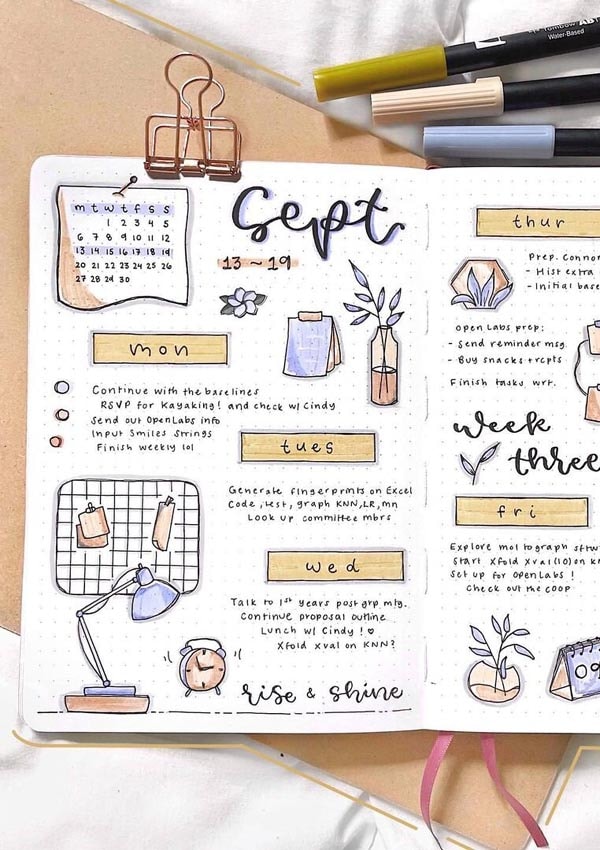 Tombow AB
Water-Based
m t w t f s s
1 2 3 4 5
6 7 8 9 10 11 12
13 14 15 16 17 18 19
20 21 22 23 24 25 26
27 28 29 30
Sept
13 ~ 19
mon
Continue with the baselines
RSVP for Kayaking! and check w/ Cindy
Send out OpenLabs info
Input Smiles Strings
Finish weekly lol
tues
Generate fingerprints on Excel
Code, test, graph KNN, LR, mn
Look up committee mbrs
wed
Talk to 1st years post grp mtg.
Continue proposal outline
Lunch w/ Cindy! ♡
Xfold xval on KNN?
rise & shine
thur
Prep. Connor
- Hist extra
- Initial base
OpenLabs prep:
- Send reminder msg
- Buy snacks + rcpts
Finish tasks wrt.
week
three
fri
Explore mol to graph sftw
Start Xfold Xval (10) on KN
Set up for OpenLabs!
Check out the COOP
09